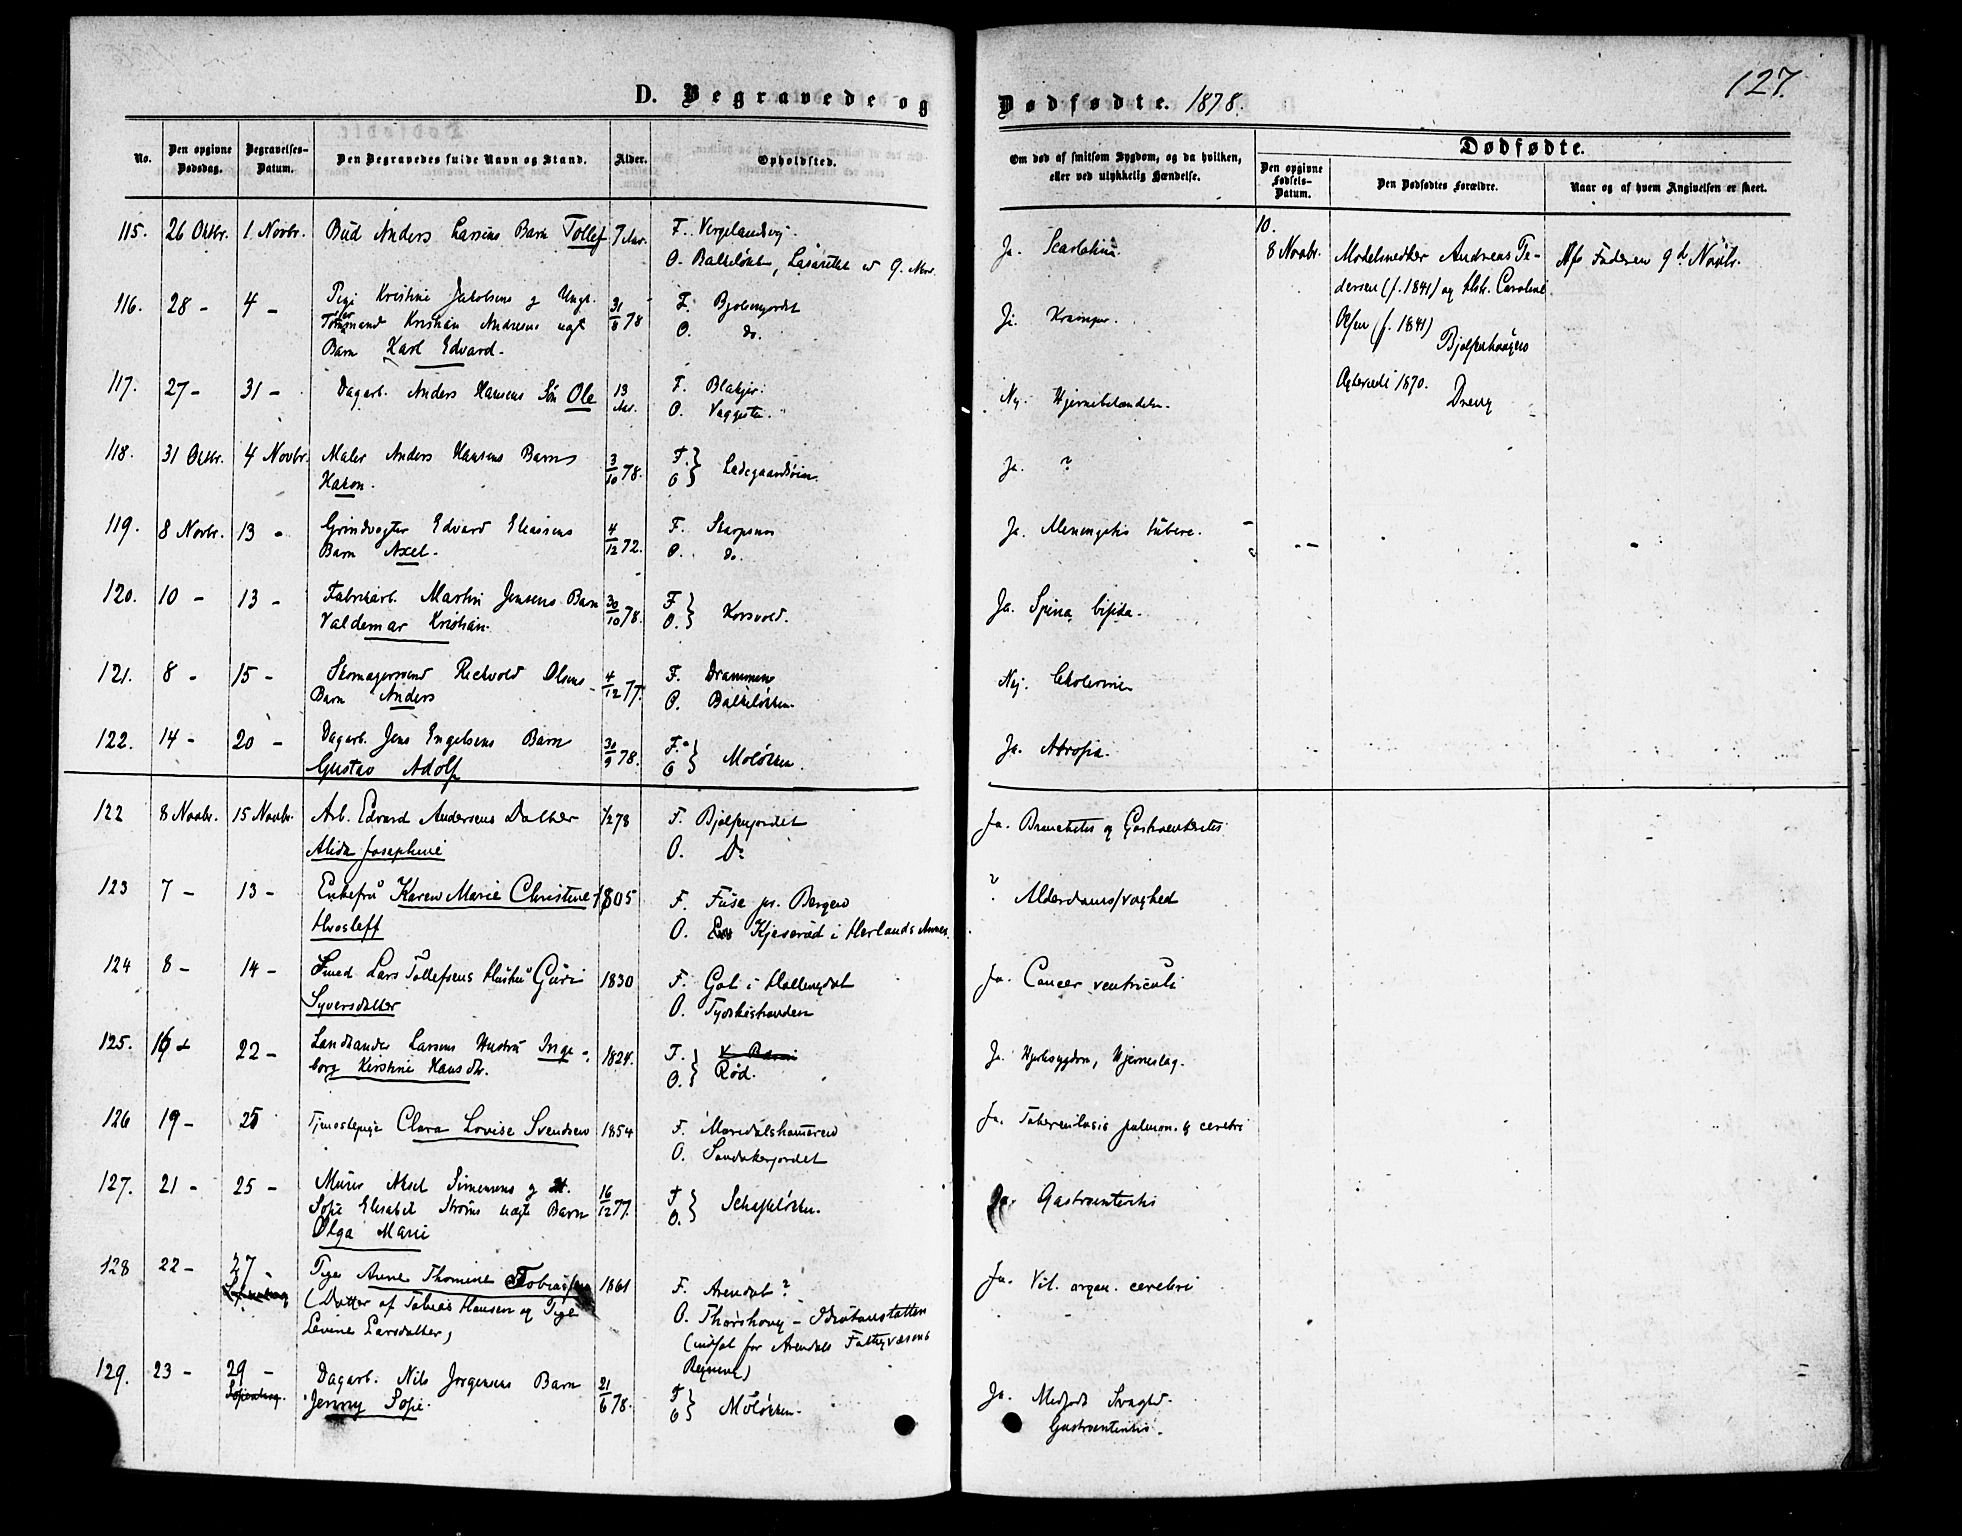 127.
D. Begravede og Dødfødte. 1878.
No.
Den opgivne Dødsdag.
Begravelses-Datum.
Den Begravedes fulde Navn og Stand.
Alder.
Opholdsted.
Om død af smitsom Sygdom, og da hvilken, eller ved ulykkelig Hændelse.
Dødfødte.
Den opgivne Fødsels-Datum.
Den Dødfødtes Forældre.
Naar og af hvem Angivelsen er skeet.
115. 26 Oktbr. 1 Novbr. Bud Anders Larsens Barn Tollef 7 Aar. F. Vergelandsvej.
O. Balkeløkken, Lasarettet
Ja. Scarlatina.
10.
8 Novbr. Modelsnedker Andreas Pe-
dersen (f. 1841) og Hstr. Caroline
Olsen (f. 1841)
Bjølsenhaugens
1870.
Dreng
Af Faderen 9d Novbr.
116. 28 - 4 - Pige Kristine Jakobsens og Ungk.
Tømmermand Kristian Andresens uægt
Barn Karl Edvard. 31/8 78 F. Bjølsenjordet
O. do.
Ja. Kramper.
117. 27 - 31 - Dagarb. Anders Hansens Søn Ole 13 Aar. F. Blakjer.
O. Vaggesten.
Nej. Hjernebetændelse.
118. 31 Oktbr. 4 Novbr. Maler Anders Hansens Barn
Hakon. 3/10 78. F. O. Ladegaardsøen.
Ja. ?
119. 8 Novbr. 13 - Grindvogter Edvard Eliassens
Barn Axel. 4/12 72. F. Skarpsno
O. do.
Ja. Meningitis tuberc.
120. 10 - 13 - Fabrikarb. Martin Jensens Barn
Valdemar Kristian. 30/10 78. F. O. Korsvold.
Ja. Spina bifida.
121. 8 - 15 - Skomagersvend Richvold Olsens
Barn Anders 4/12 77. F. Drammen
O. Balkeløkken.
Nej. Cholerine
122. 14 - 20 - Dagarb. Jens Engelsens Barn
Gustav Adolf 30/9 78. F. O. Moløkken.
Ja. Atrofia.
122 8 Novbr. 15 Novbr. Arb. Edvard Andersens Datter
Alida Josephine 1/2 78 F. Bjølsenjordet
O. Do
Ja. Bronchitis og Gastroenteritis
123 7 - 13 - Enkefru Karen Marie Christine
Hvosleff 1805 F. Fuse pr. Bergen
O. Kjeserud i Herlands Annex.
? Alderdomssvaghed
124 8 - 14 - Smed Lars Tollefsens Hustru Guri
Syversdatter 1830 F. Gol i Hallingdal
O. Tyskestranden
Ja. Cancer ventriculi
125. 16 - 22 - Landhandler Larsens Hustru Inge-
borg Kirstine Hansdtr. 1824. F. O. Rød.
Ja. Hjertesygdom, Hjerneslag.
126 19 - 25 Tjenestepige Clara Lovise Svendsen 1854 F. Maridalshammeren
O. Sandakerjordet
Ja. Tuberculosis pulmon. & cerebri
127. 21 - 25 - Murer Aksel Simensens og
Sofie Elisabet Strøms uægte Barn
Olga Marie 16/12 77. F. O. Schafteløkken.
Ja. Gastroenteritis
128 22 - 27 - Pige Anne Thomine Tobiassen
(Datter af Tobias Hansen og Pige
Levine Larsdatter) 1861 F. Arendal?
O. Thorshoug - Idiotanstalten
(indsat for Arendals Fattigvæsens
Regning)
Ja. Vit. organ. cerebri
129. 23 - 29 - Sofienberg. Dagarb. Nils Jørgensens Barn
Jenny Sofie. 21/6 78. F. O. Moløkken.
Ja. Medfødt Svaghed.
Gastroenteritis.